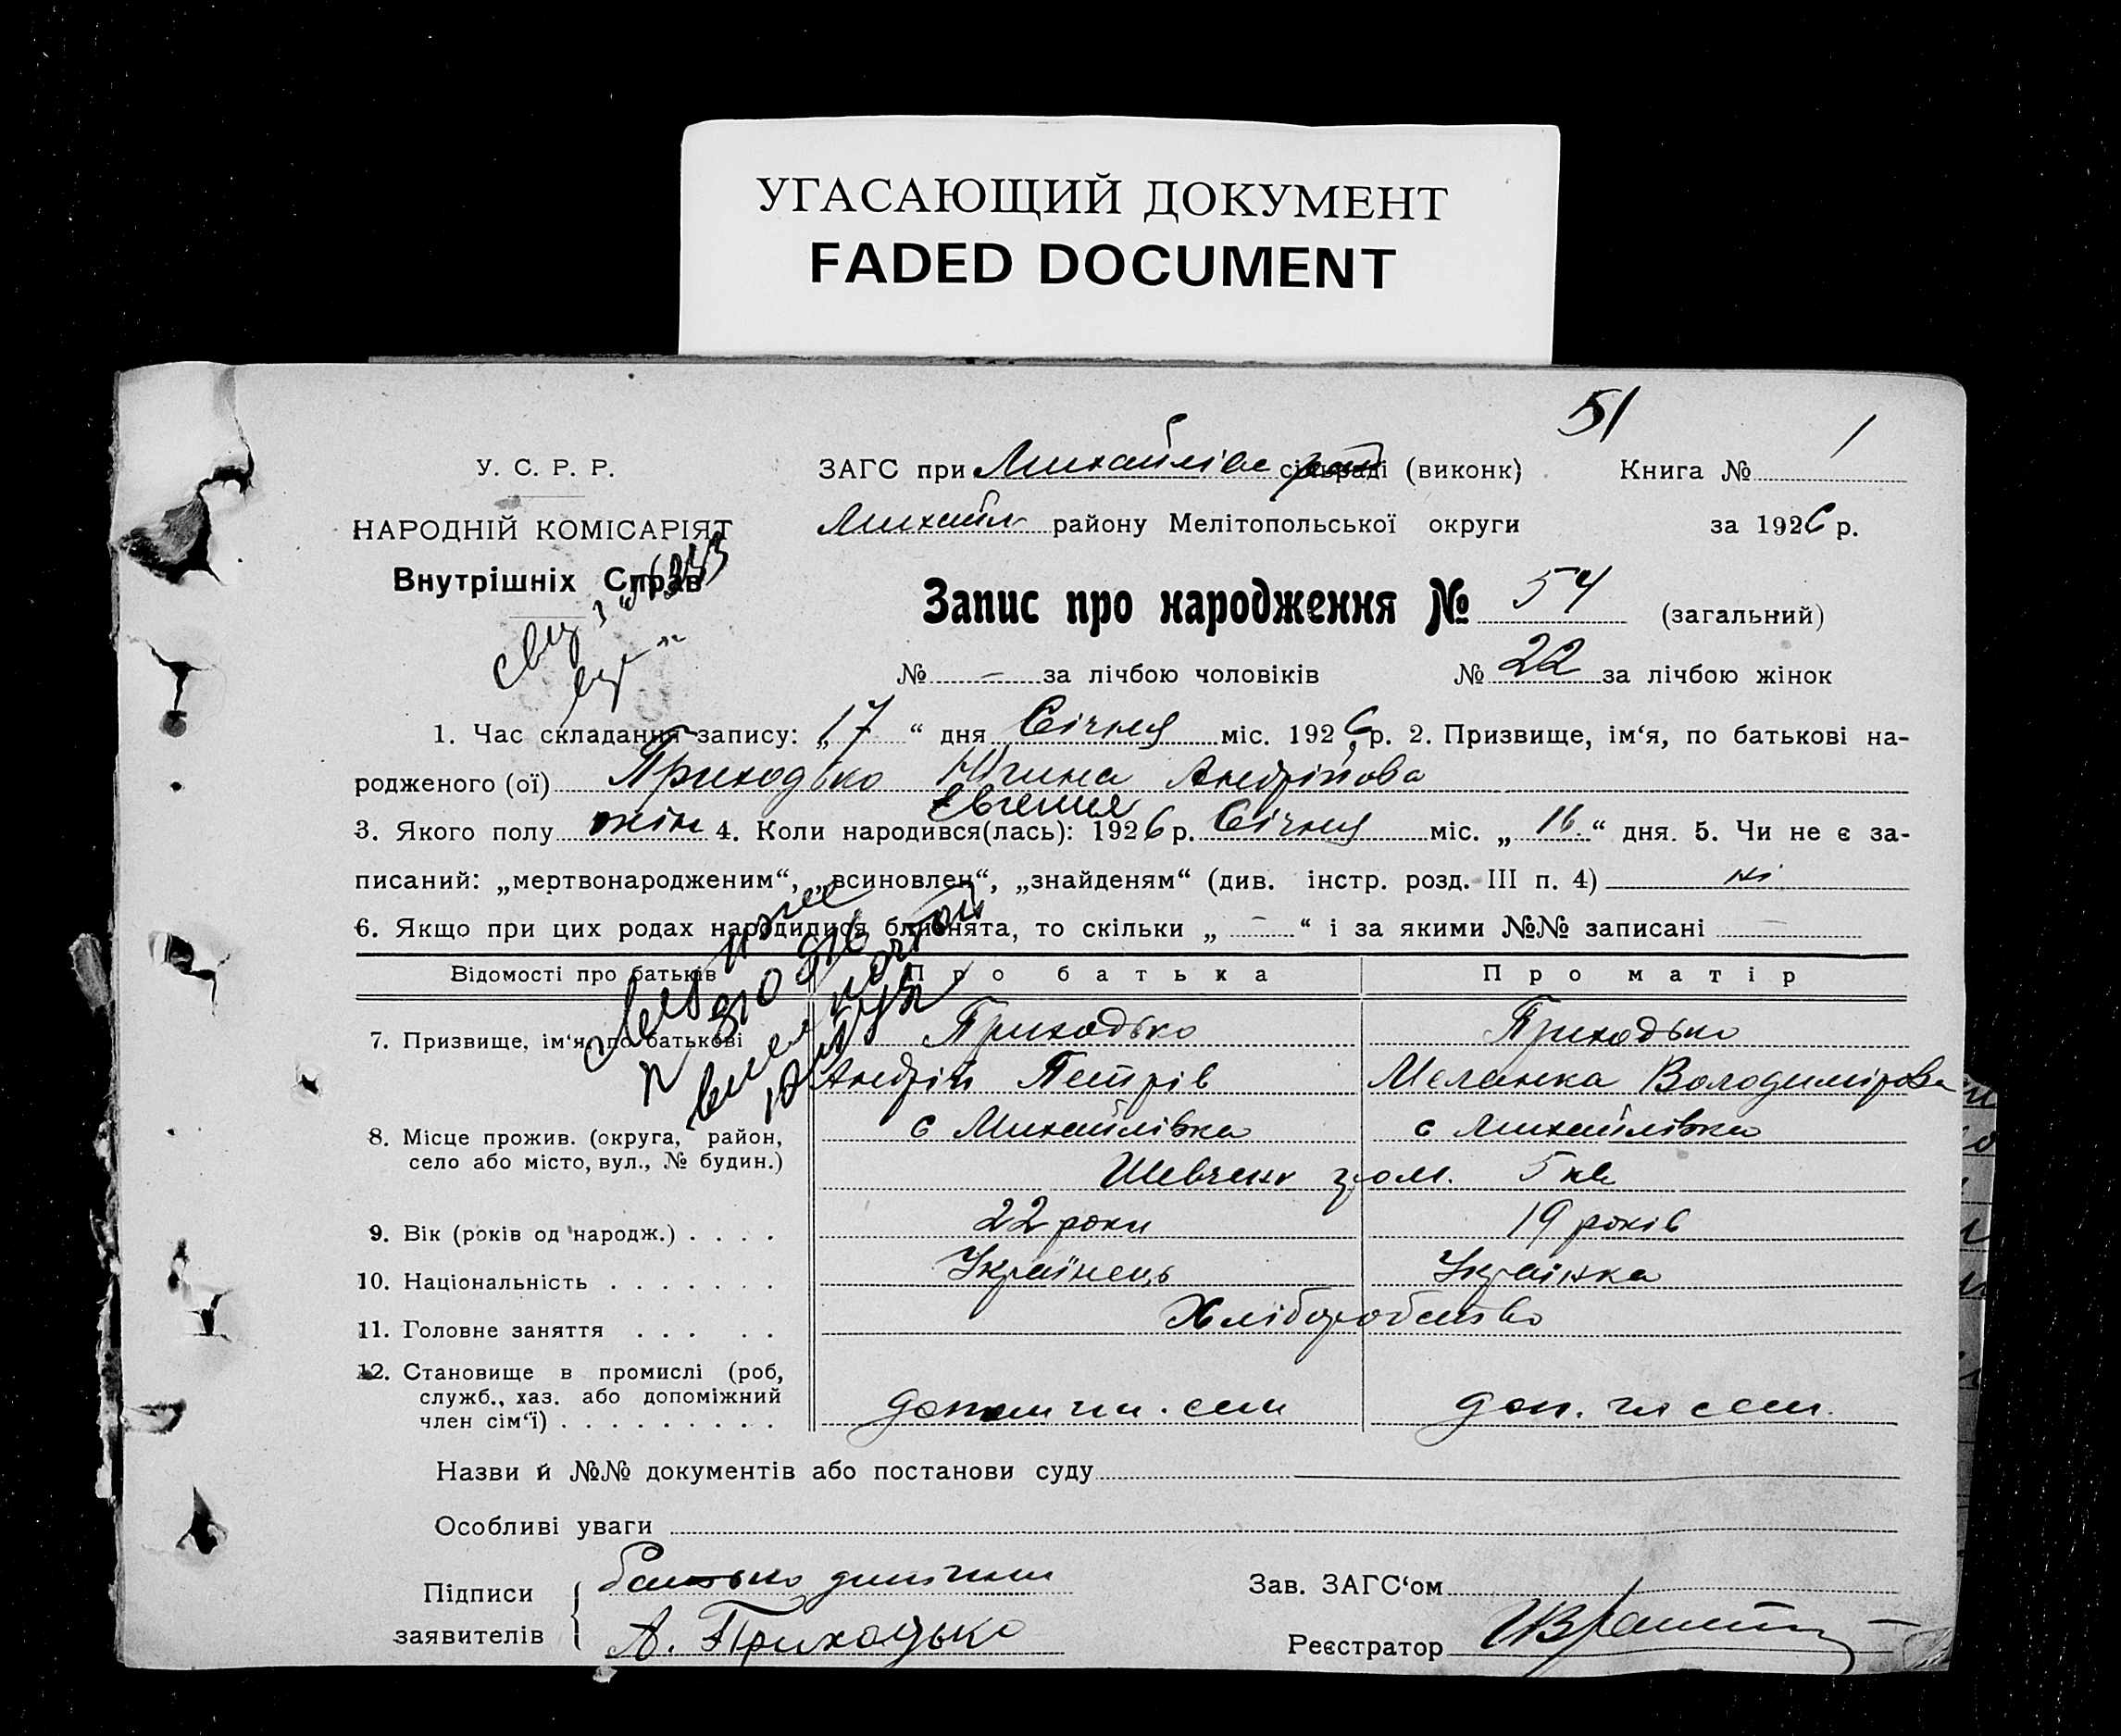 УГАСАЮЩИЙ ДОКУМЕНТ
FADED DOCUMENT
51
У. С. Р. Р.
ЗАГС при Михайлівс сільраді (виконк) Книга № 1
НАРОДНІЙ КОМІСАРІЯТ
Михайл районy Мелітопольської округи за 1926 р.
Внутрішніх Справ
Запис про народження № 54 (загальний)
№ - за лічбою чоловіків № 22 за лічбою жінок
1. Час складання запису: „17“ дня Січня міс. 1926 р. 2. Призвище, ім‘я, по батькові на-
родженого (ої) Приходько Югина Андрійова
Евгения
3. Якого полу жін 4. Коли народився(лась): 1926 р. Січня міс. „16.“ дня. 5. Чи не є за-
писаний: „мертвонародженим“, „всиновлен“, „знайденям“ (див. інстр. розд. III п. 4) ні
6. Якщо при цих родах народилися близнята, то скільки „ - “ і за якими №№ записані -
Відомості про батьків Про батька Про матір
7. Призвище, ім‘я, по батькові Приходько Приходько
Андрій Петрів Меланка Володимірова
8. Місце прожив. (округа, район, село або місто, вул., № будин.) с Михайлівка с Михайлівка
Шевченк гром. 5 кв
9. Вік (років од народж.) . . . . 22 роки 19 років
10. Національність . . . . . . . Українець Українка
11. Головне заняття . . . . . Хліборобство
12. Становище в промислі (роб,
служб., хаз. або допоміжний
член сім‘ї) . . . . . . . . . допом чл. сем доп. чл сем.
Назви й №№ документів або постанови суду
Особливі уваги
Підписи заявителів батько дитини
А. Приходько
Зав. ЗАГС‘ом
Реєстратор